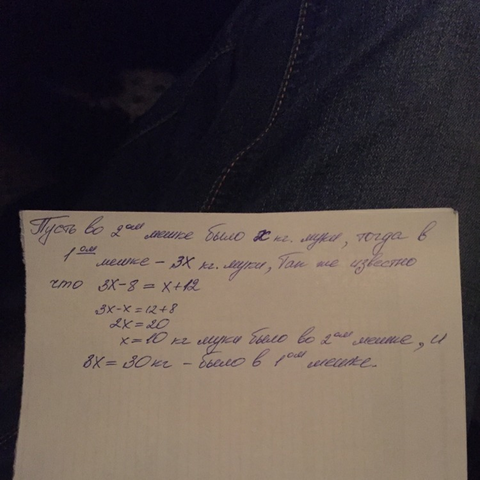 Пусть во 2ом мешке было x кг. муки, тогда в
1ом мешке – 3x кг. муки, Так же известно
что 3x-8 = x+12
3x-x=12+8
2x=20
x=10 кг муки было во 2ом мешке, и
3x= 30кг – было в 1ом мешке.